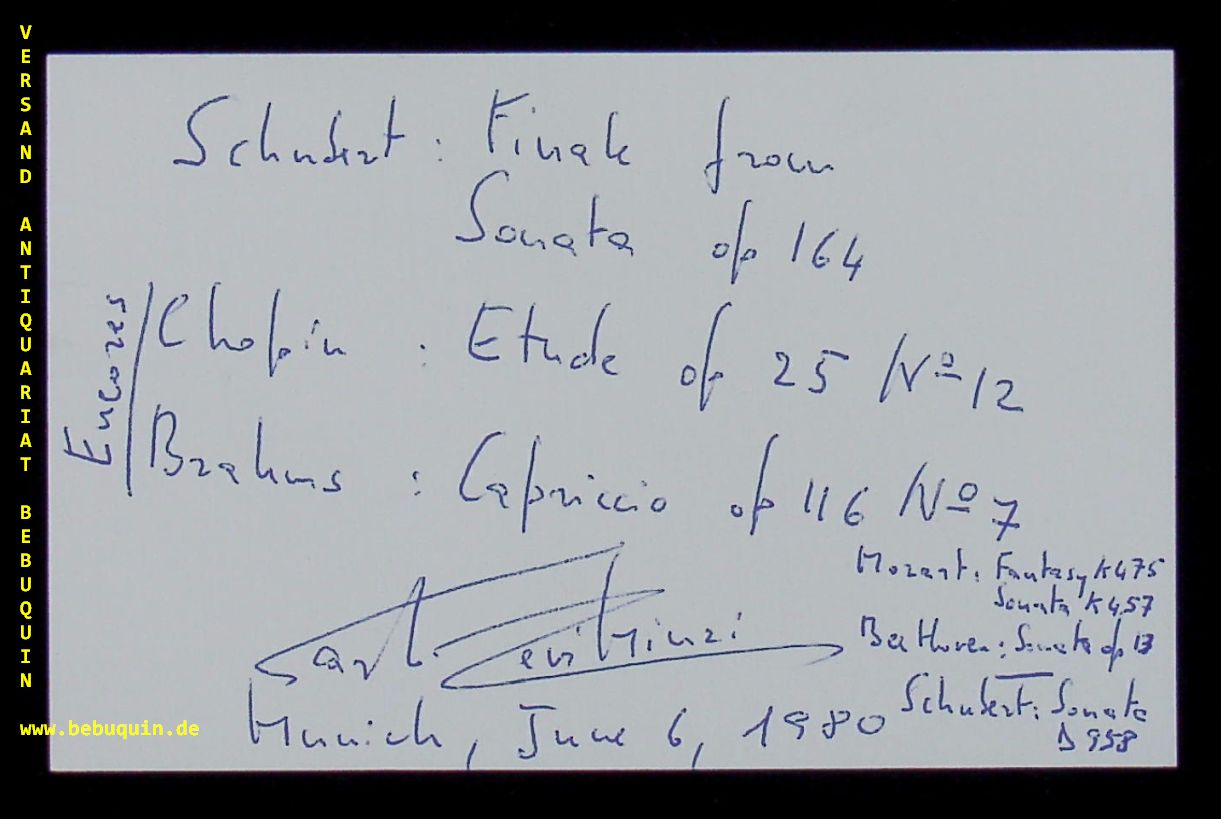 VERSAND ANTIQUARIAT BEBUQUIN
www.bebuquin.de
Schubert: Finale from
Sonata op 164
Encores
Chopin : Etude op 25 Nº 12
Brahms : Capriccio op 116 Nº 7
Mozart: Fantasy K475
Sonata K457
Beethoven: Sonata op 13
Schubert: Sonata
D 958
Munich, June 6, 1980